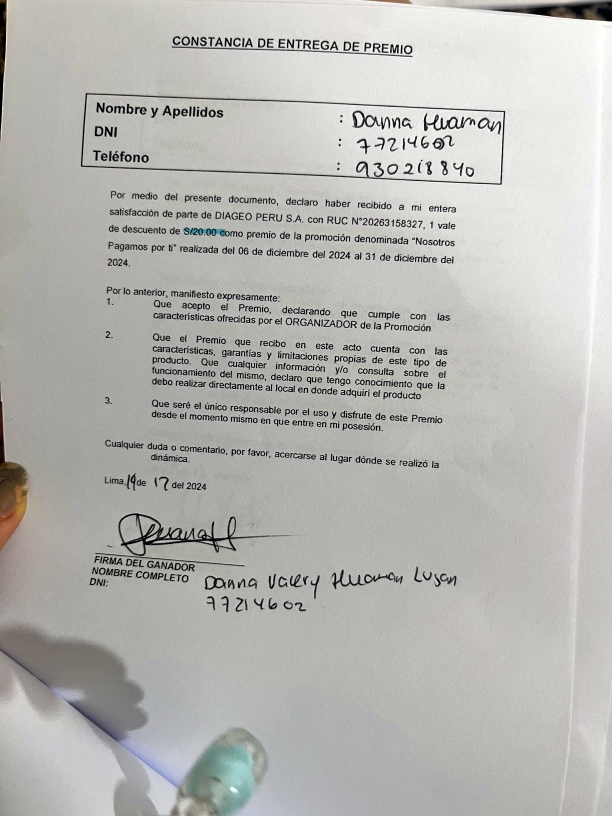 CONSTANCIA DE ENTREGA DE PREMIO
Nombre y Apellidos : Danna Huaman
DNI : 77214602
Teléfono : 930218840
Por medio del presente documento, declaro haber recibido a mi entera
satisfacción de parte de DIAGEO PERU S.A. con RUC N°20263158327, 1 vale
de descuento de S/20.00 como premio de la promoción denominada "Nosotros
Pagamos por ti" realizada del 06 de diciembre del 2024 al 31 de diciembre del
2024.
Por lo anterior, manifiesto expresamente:
1. Que acepto el Premio, declarando que cumple con las
características ofrecidas por el ORGANIZADOR de la Promoción
2. Que el Premio que recibo en este acto cuenta con las
características, garantías y limitaciones propias de este tipo de
producto. Que cualquier información y/o consulta sobre el
funcionamiento del mismo, declaro que tengo conocimiento que la
debo realizar directamente al local en donde adquirí el producto
3. Que seré el único responsable por el uso y disfrute de este Premio
desde el momento mismo en que entre en mi posesión.
Cualquier duda o comentario, por favor, acercarse al lugar dónde se realizó la
dinámica.
Lima, 19 de 12 del 2024
FIRMA DEL GANADOR
NOMBRE COMPLETO Danna Valery Huaman Lujan
DNI: 77214602